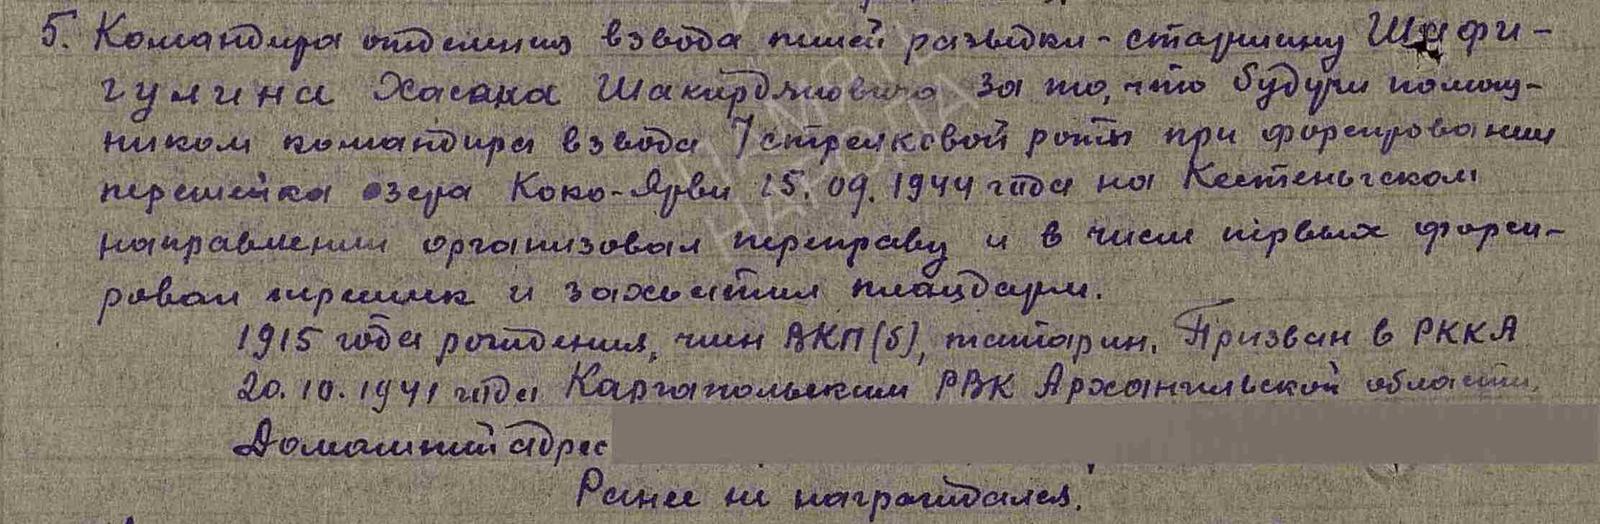 5. Командира отделения взвода пешей разведки - старшину Шафи-
гулина Хасана Шакирдяновича за то, что будучи помощ-
ником командира взвода 7 стрелковой роты при форсировании
перешейка озера Коко-Ярви 15.09.1944 года на Кестеньгском
направлении организовал переправу и в числе первых форси-
ровал перешеек и захватил плацдарм.
1915 года рождения, член ВКП(б), татарин. Призван в РККА
20.10.1941 года Каргапольским РВК Архангельской области.
Домашний адрес
Ранее не награждался.
ПАМЯТЬ
НАРОДА